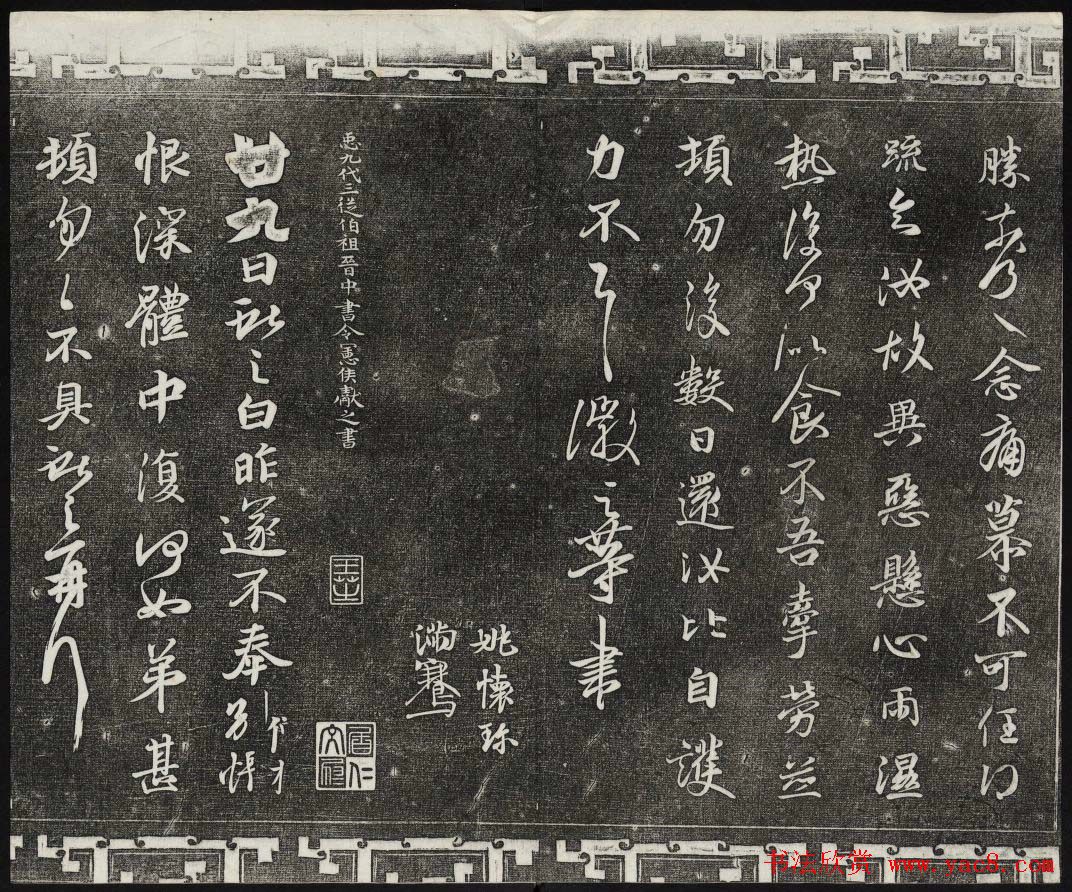 勝奈何〻念痛慕不可任得
疏知汝故異惡懸心雨濕
熱復何似食不吾牽勞並
頓勿復數日還汝比自護
力不 徽之等書
姚懷珍
滿騫
臣九代三從伯祖晉中書令憲侯獻之書
廿九日獻之白昨遂不奉別悵
恨深體中復何如弟甚
頓勿〻不具獻之再拜
书法欣赏 www.yac8.com